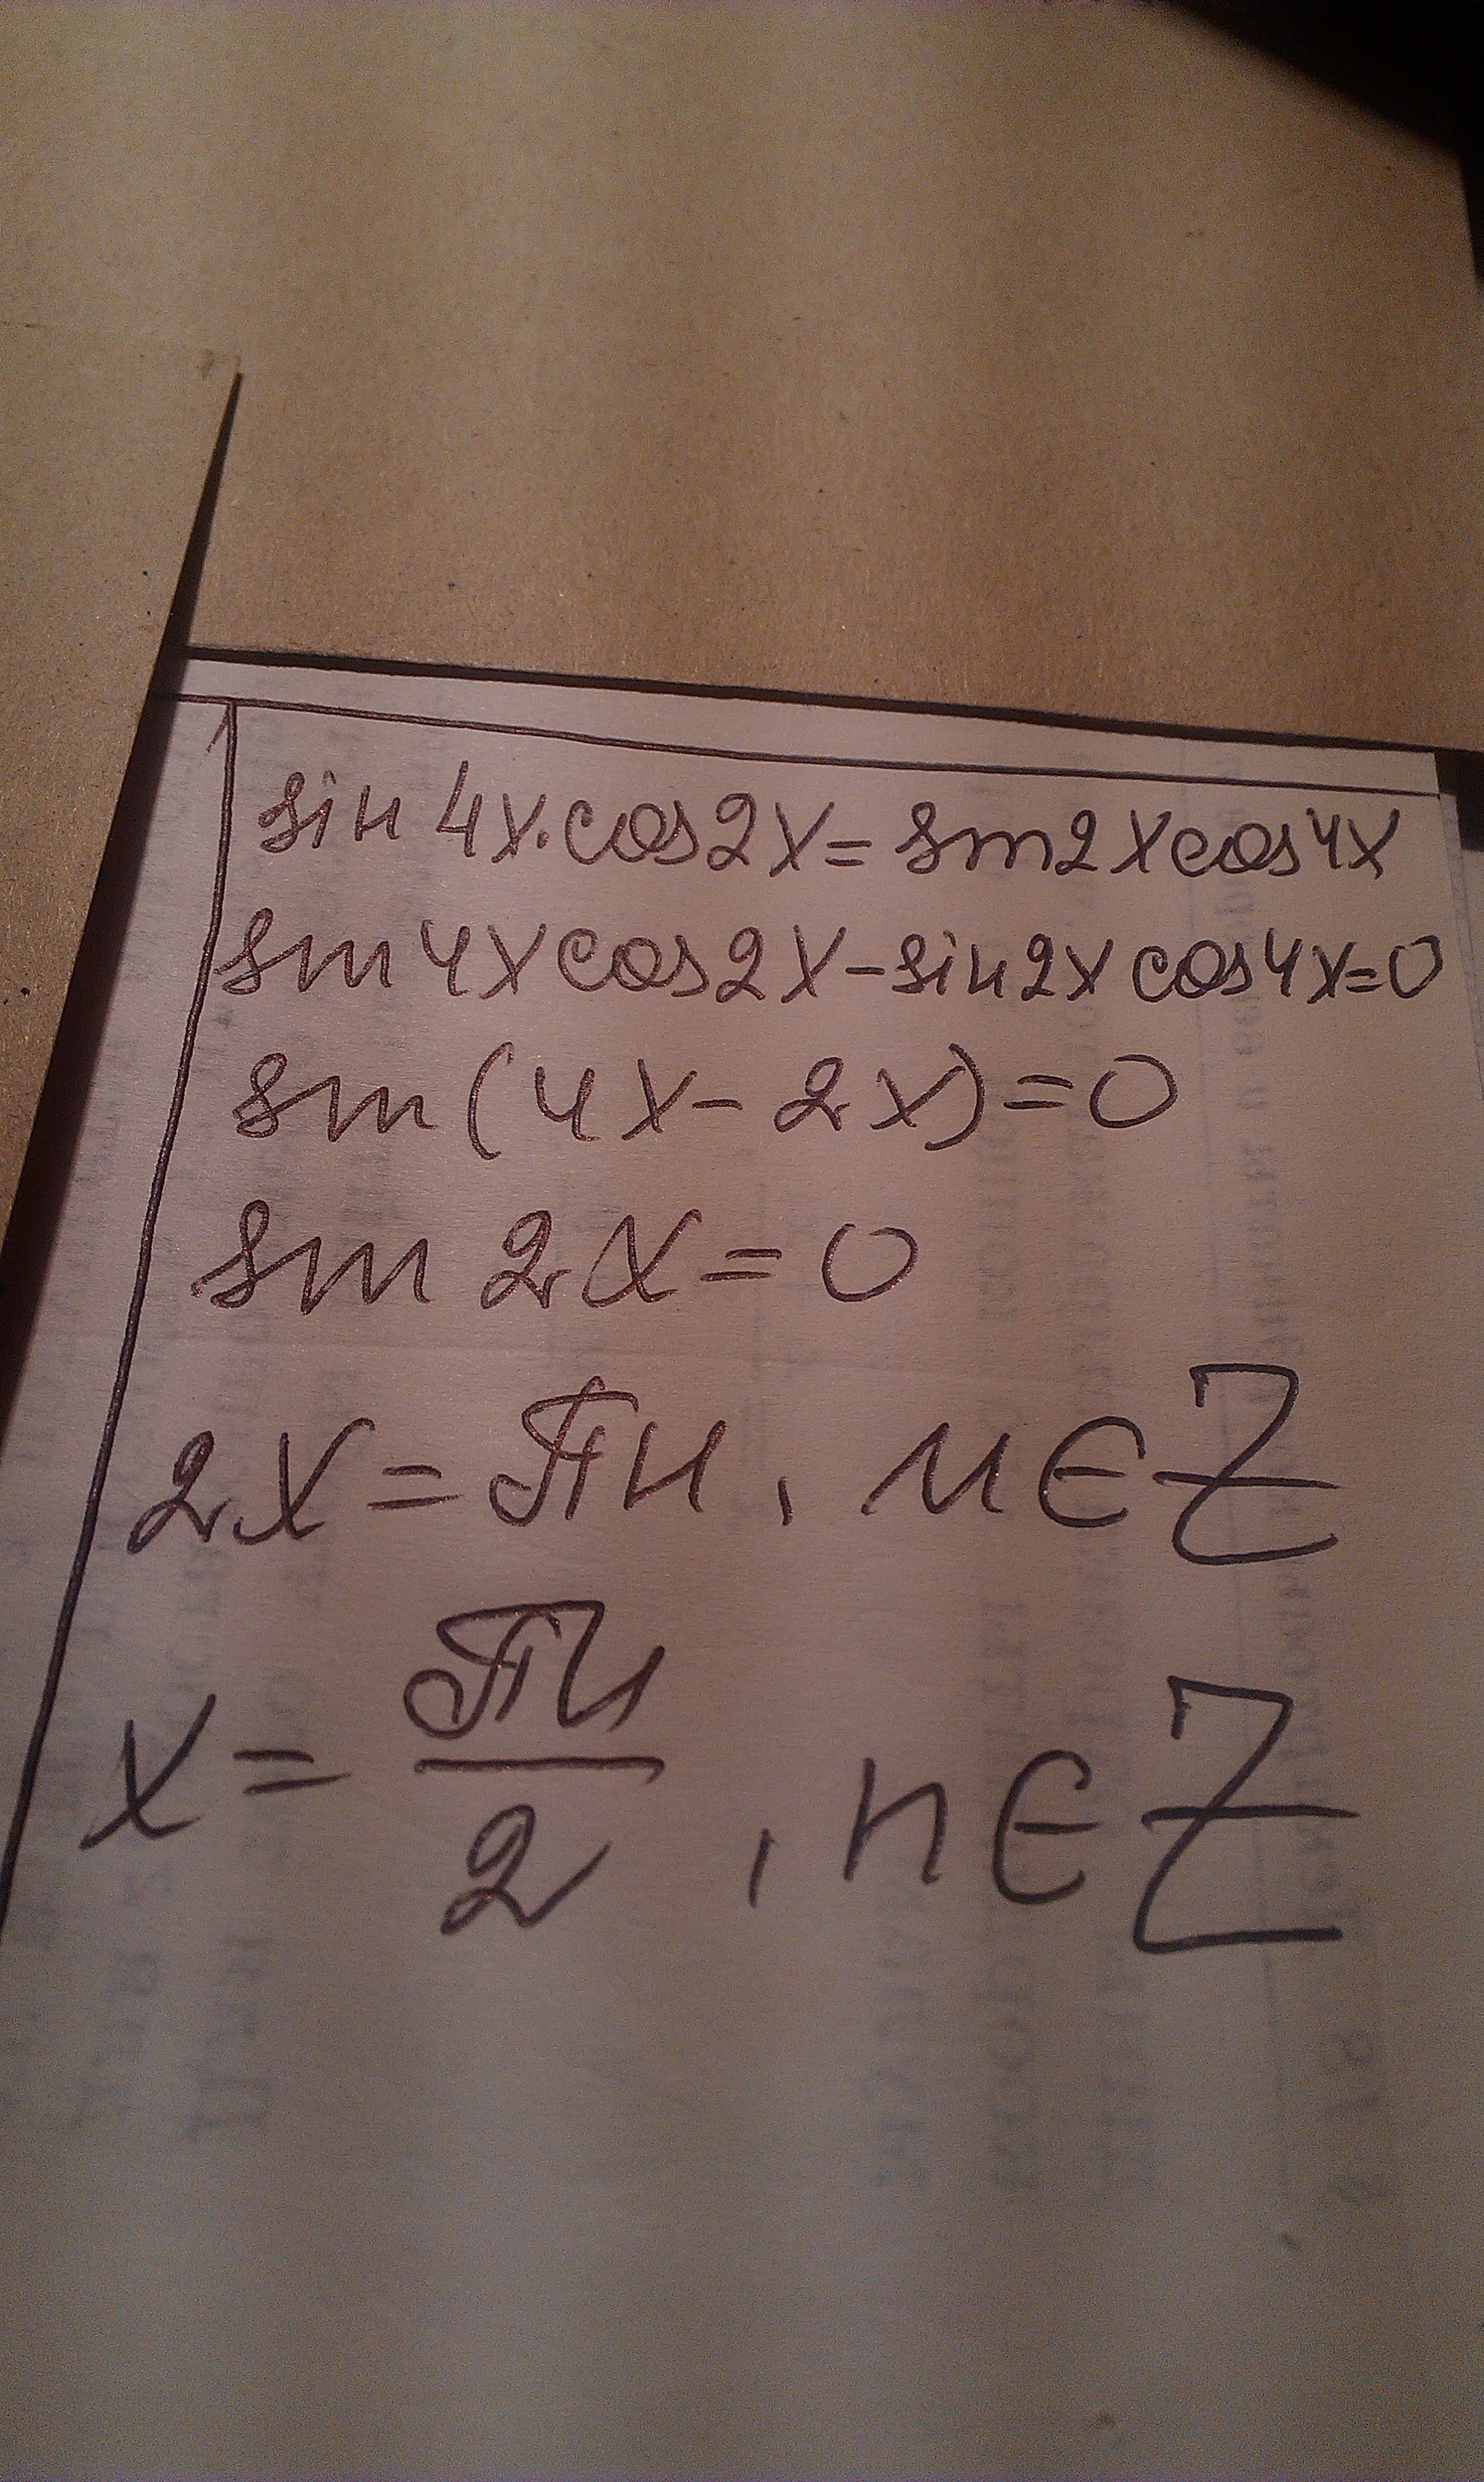 sin 4x·cos2x=sin2xcos4x
sin4xcos2x-sin2xcos4x=0
sin(4x-2x)=0
sin 2x=0
2x=πn, n∈Z
x=πn/2, n∈Z